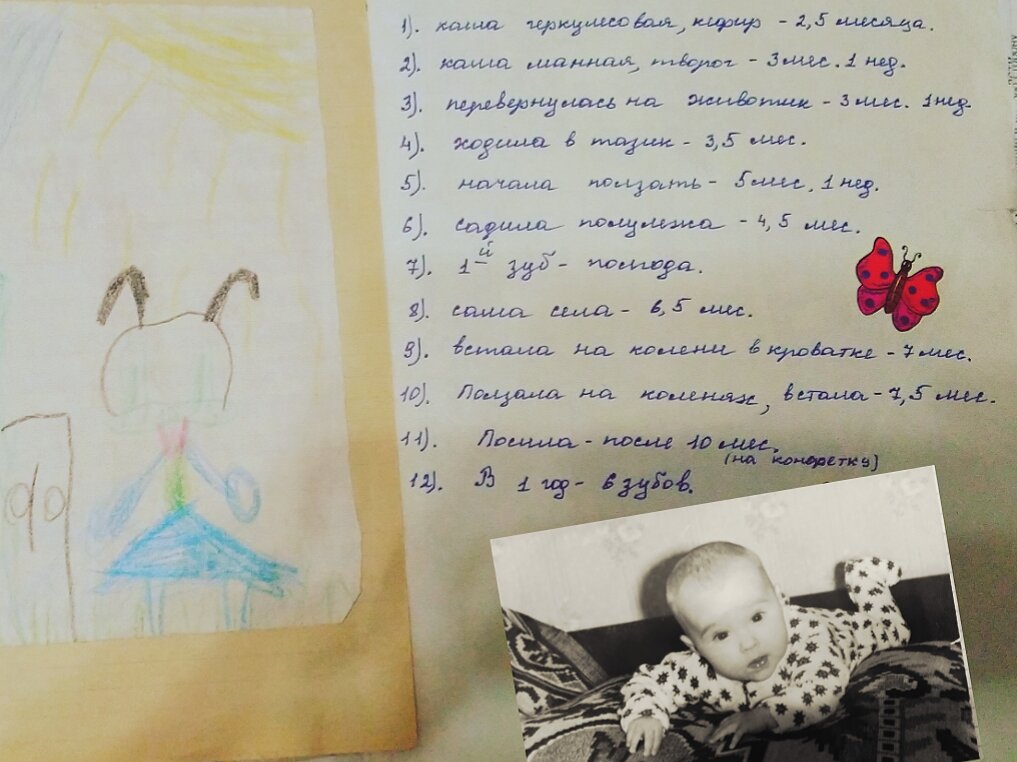 1). каша геркулесовая, кефир - 2,5 месяца.
2). каша манная, творог - 3 мес. 1 нед.
3). перевернулась на животик - 3 мес. 1 нед
4). ходила в тазик - 3,5 мес.
5). начала ползать - 5 мес, 1 нед.
6). садила полулежа - 4,5 мес.
7). 1й зуб - полгода.
8). сама села - 6,5 мес.
9). встала на колени в кроватке - 7 мес.
10). Ползала на коленях, встала - 7,5 мес.
11). после 10 мес.
(на конфетку)
12). В 1 год - 6 зубов.